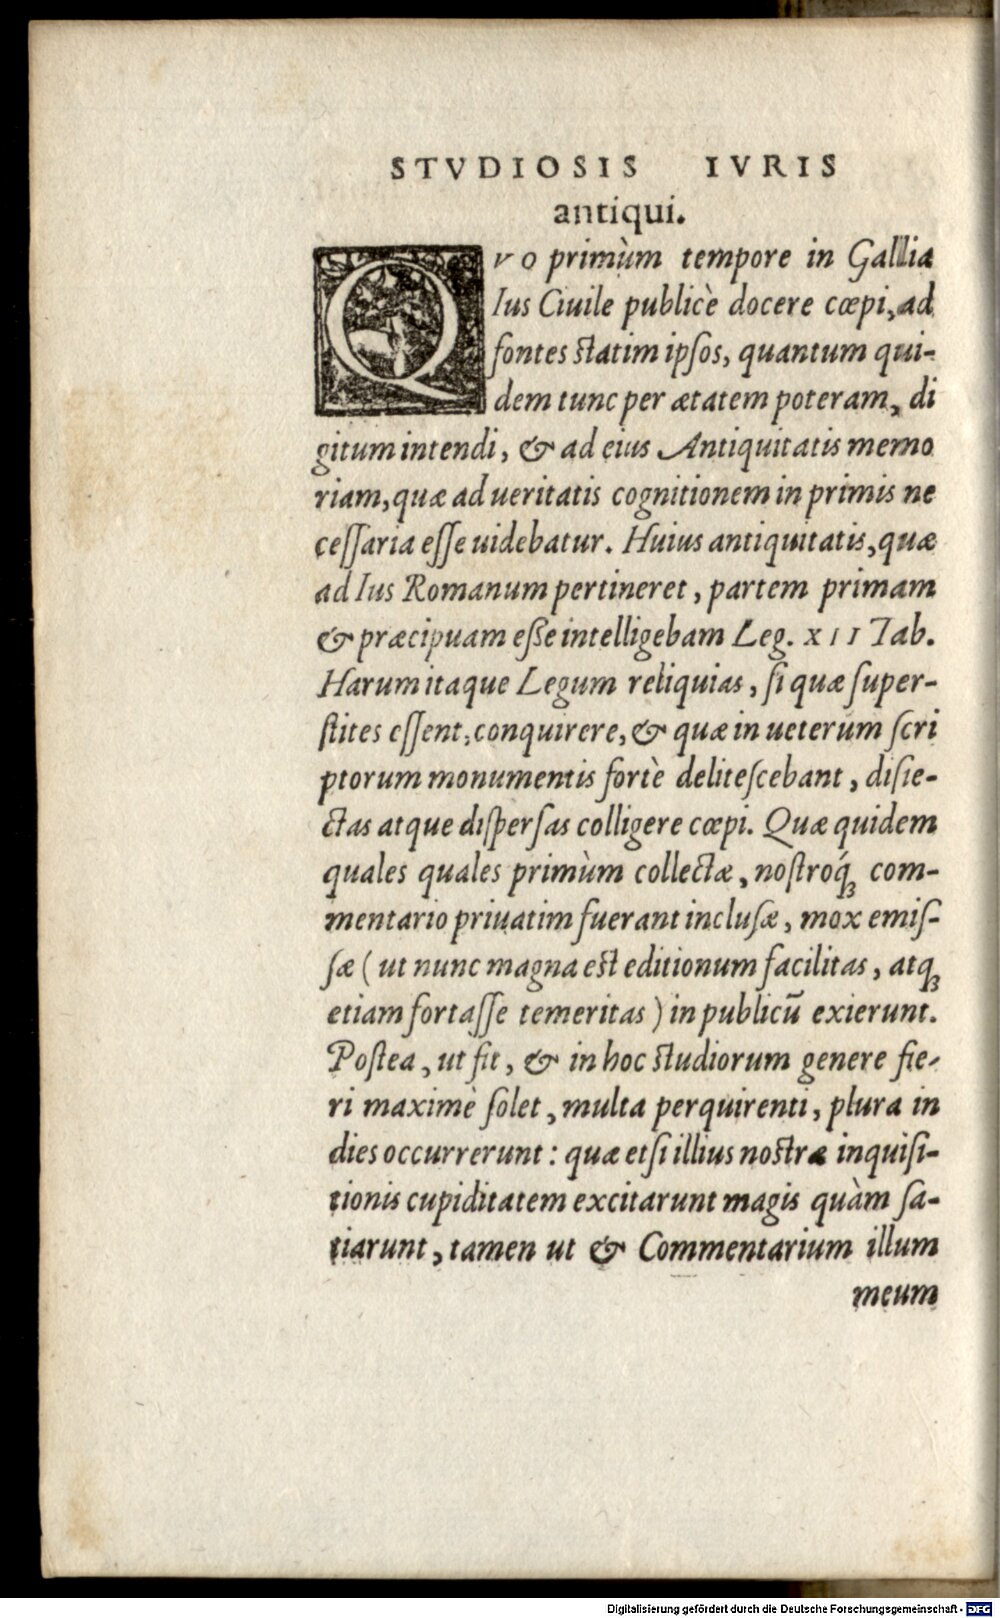 STVDIOSIS IVRIS
antiqui.
QVO primùm tempore in Gallia
Ius Ciuile publicè docere cœpi, ad
fontes statim ipsos, quantum qui-
dem tunc per ætatem poteram, di
gitum intendi, & ad eius Antiquitatis memo
riam, quæ ad ueritatis cognitionem in primis ne
cessaria esse uidebatur. Huius antiquitatis, quæ
ad Ius Romanum pertineret, partem primam
& præcipuam eße intelligebam Leg. XII Tab.
Harum itaque Legum reliquias, si quæ super-
stites essent, conquirere, & quæ in ueterum scri
ptorum monumentis fortè delitescebant, disie-
ctas atque dispersas colligere cœpi. Quæ quidem
quales quales primùm collectæ, nostroq́ꝫ com-
mentario priuatim fuerant inclusæ, mox emis-
sæ (ut nunc magna est editionum facilitas, atqꝫ
etiam fortasse temeritas) in publicū exierunt.
Postea, ut fit, & in hoc studiorum genere fie-
ri maximè solet, multa perquirenti, plura in
dies occurrerunt: quæ etsi illius nostræ inquisi-
tionis cupiditatem excitarunt magis quàm sa-
tiarunt, tamen ut & Commentarium illum
meum
Digitalisierung gefördert durch die Deutsche Forschungsgemeinschaft - DFG